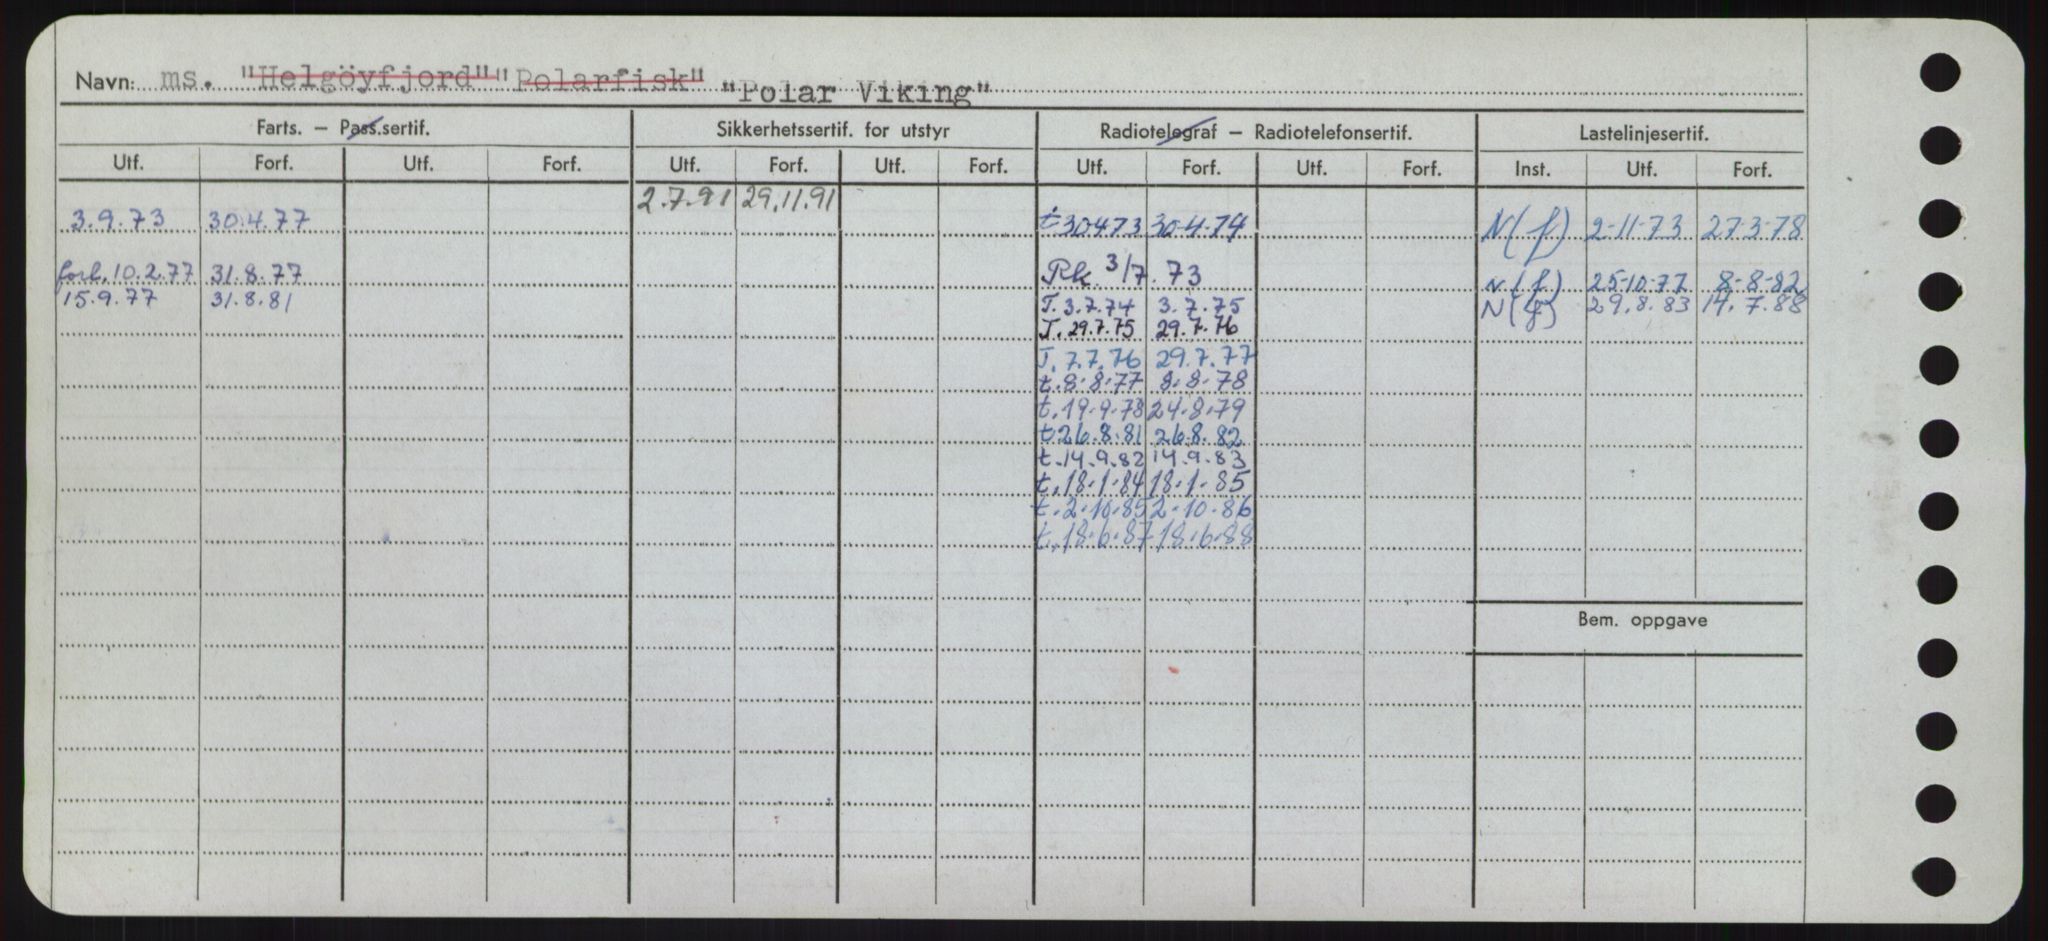 Navn: ms. "Helgöyfjord" "Polarfisk" "Polar Viking"
Farts. – Pass.sertif. Sikkerhetssertif. for utstyr Radiotelegraf – Radiotelefonsertif. Lastelinjesertif.
Utf. Forf. Utf. Forf. Utf. Forf. Utf. Forf. Utf. Forf. Utf. Forf. Inst. Utf. Forf.
2.7.91 29.11.91
3.9.73 30.4.77 t 30473 30-4-74 N(f) 2-11-73 27-3-78
forl. 10.2.77 31.8.77 Rk. 3/7.73 N(f) 25-10-77 8-8-82
15.9.77 31.8.81 T. 3.7.74 3.7.75 N(f) 29.8.83 14.7.88
T. 29.7.75 29.7.76
T. 7.7.76 29.7.77
t. 8-8-77 8-8-78
t. 19-9-78 24-8-79
t 26.8.81 26.8.82
t. 14.9.82 14.9.83
t. 18-1-84 18-1-85
t. 2-10-85 2-10-86
t. 18-6-87 18-6-88
Bem. oppgave